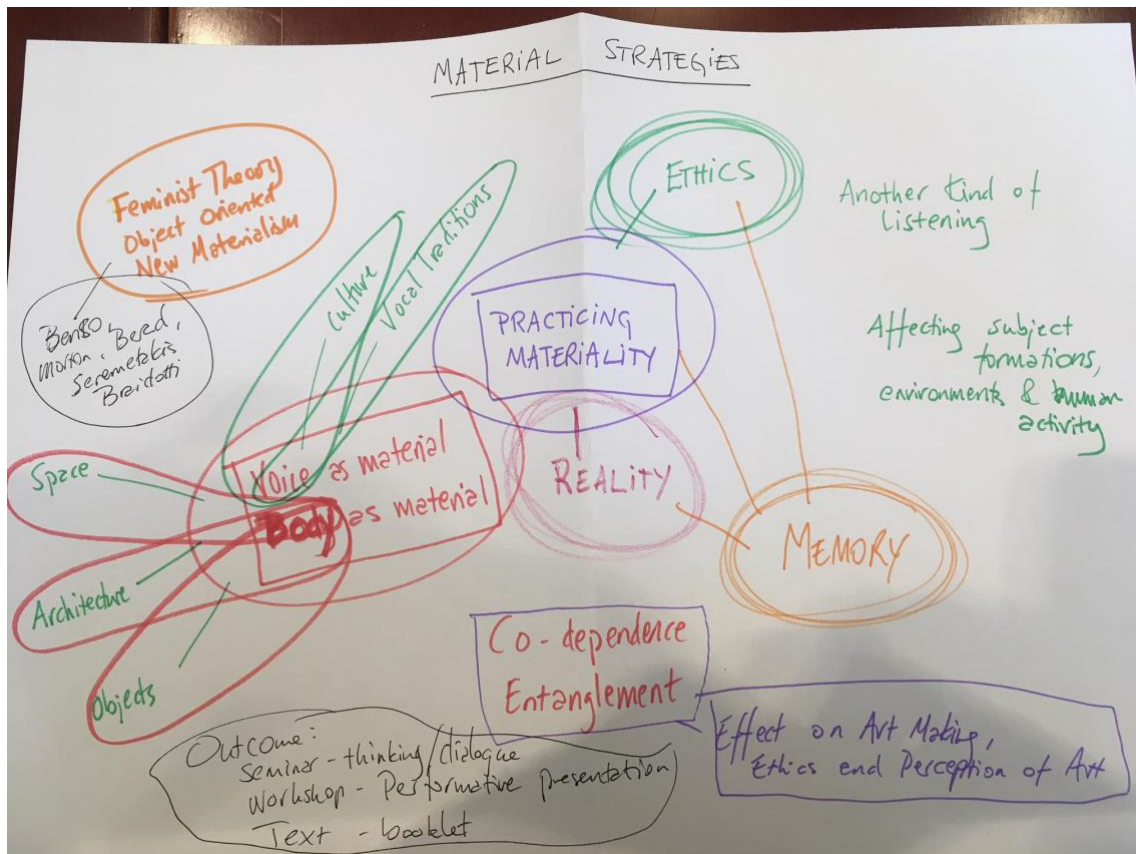 MATERIAL STRATEGIES
Feminist Theory
Object oriented
New Materialism
Benso,
Morton,
Seremetakis
Braidotti
Culture
Vocal Traditions
ETHICS
PRACTICING
MATERIALITY
Another Kind of
Listening
Affecting subject
formations,
environments & human
activity
Voice as material
Body as material
Space
Architecture
Objects
REALITY
MEMORY
Co-dependence
Entanglement
Effect on Art Making,
Ethics end Perception of Art
Outcome:
Seminar - thinking/dialogue
Workshop - Performative presentation
Text - booklet